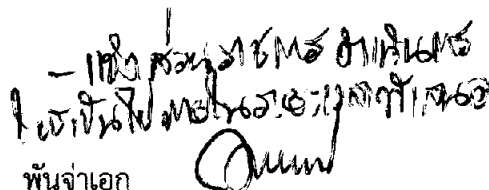 - แจ้งส่วนราชการ ดำเนินการ
ให้เป็นไปภายในระยะเวลาที่เสนอ
พันจ่าเอก